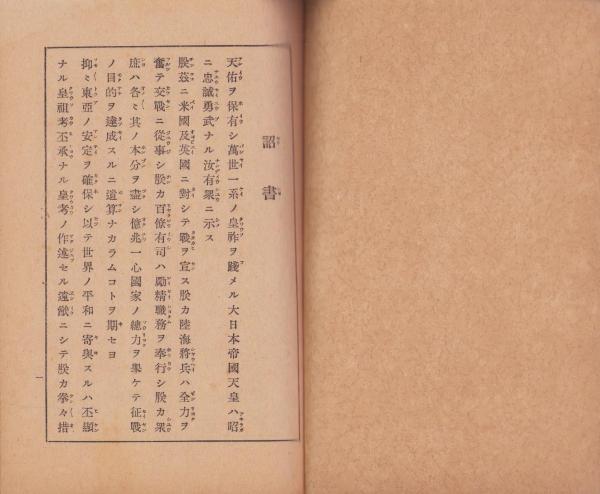 詔書
天佑ヲ保有シ萬世一系ノ皇祚ヲ踐メル大日本帝國天皇ハ昭
ニ忠誠勇武ナル汝有衆ニ示ス
朕茲ニ米國及英國ニ對シテ戰ヲ宣ス朕カ陸海將兵ハ全力ヲ
奮テ交戰ニ從事シ朕カ百僚有司ハ勵精職務ヲ奉行シ朕カ衆
庶ハ各〻其ノ本分ヲ盡シ億兆一心國家ノ總力ヲ擧ケテ征戰
ノ目的ヲ達成スルニ遺算ナカラムコトヲ期セヨ
抑〻東亞ノ安定ヲ確保シ以テ世界ノ平和ニ寄與スルハ丕顯
ナル皇祖考丕承ナル皇考ノ作述セル遠猷ニシテ朕カ拳々措
一